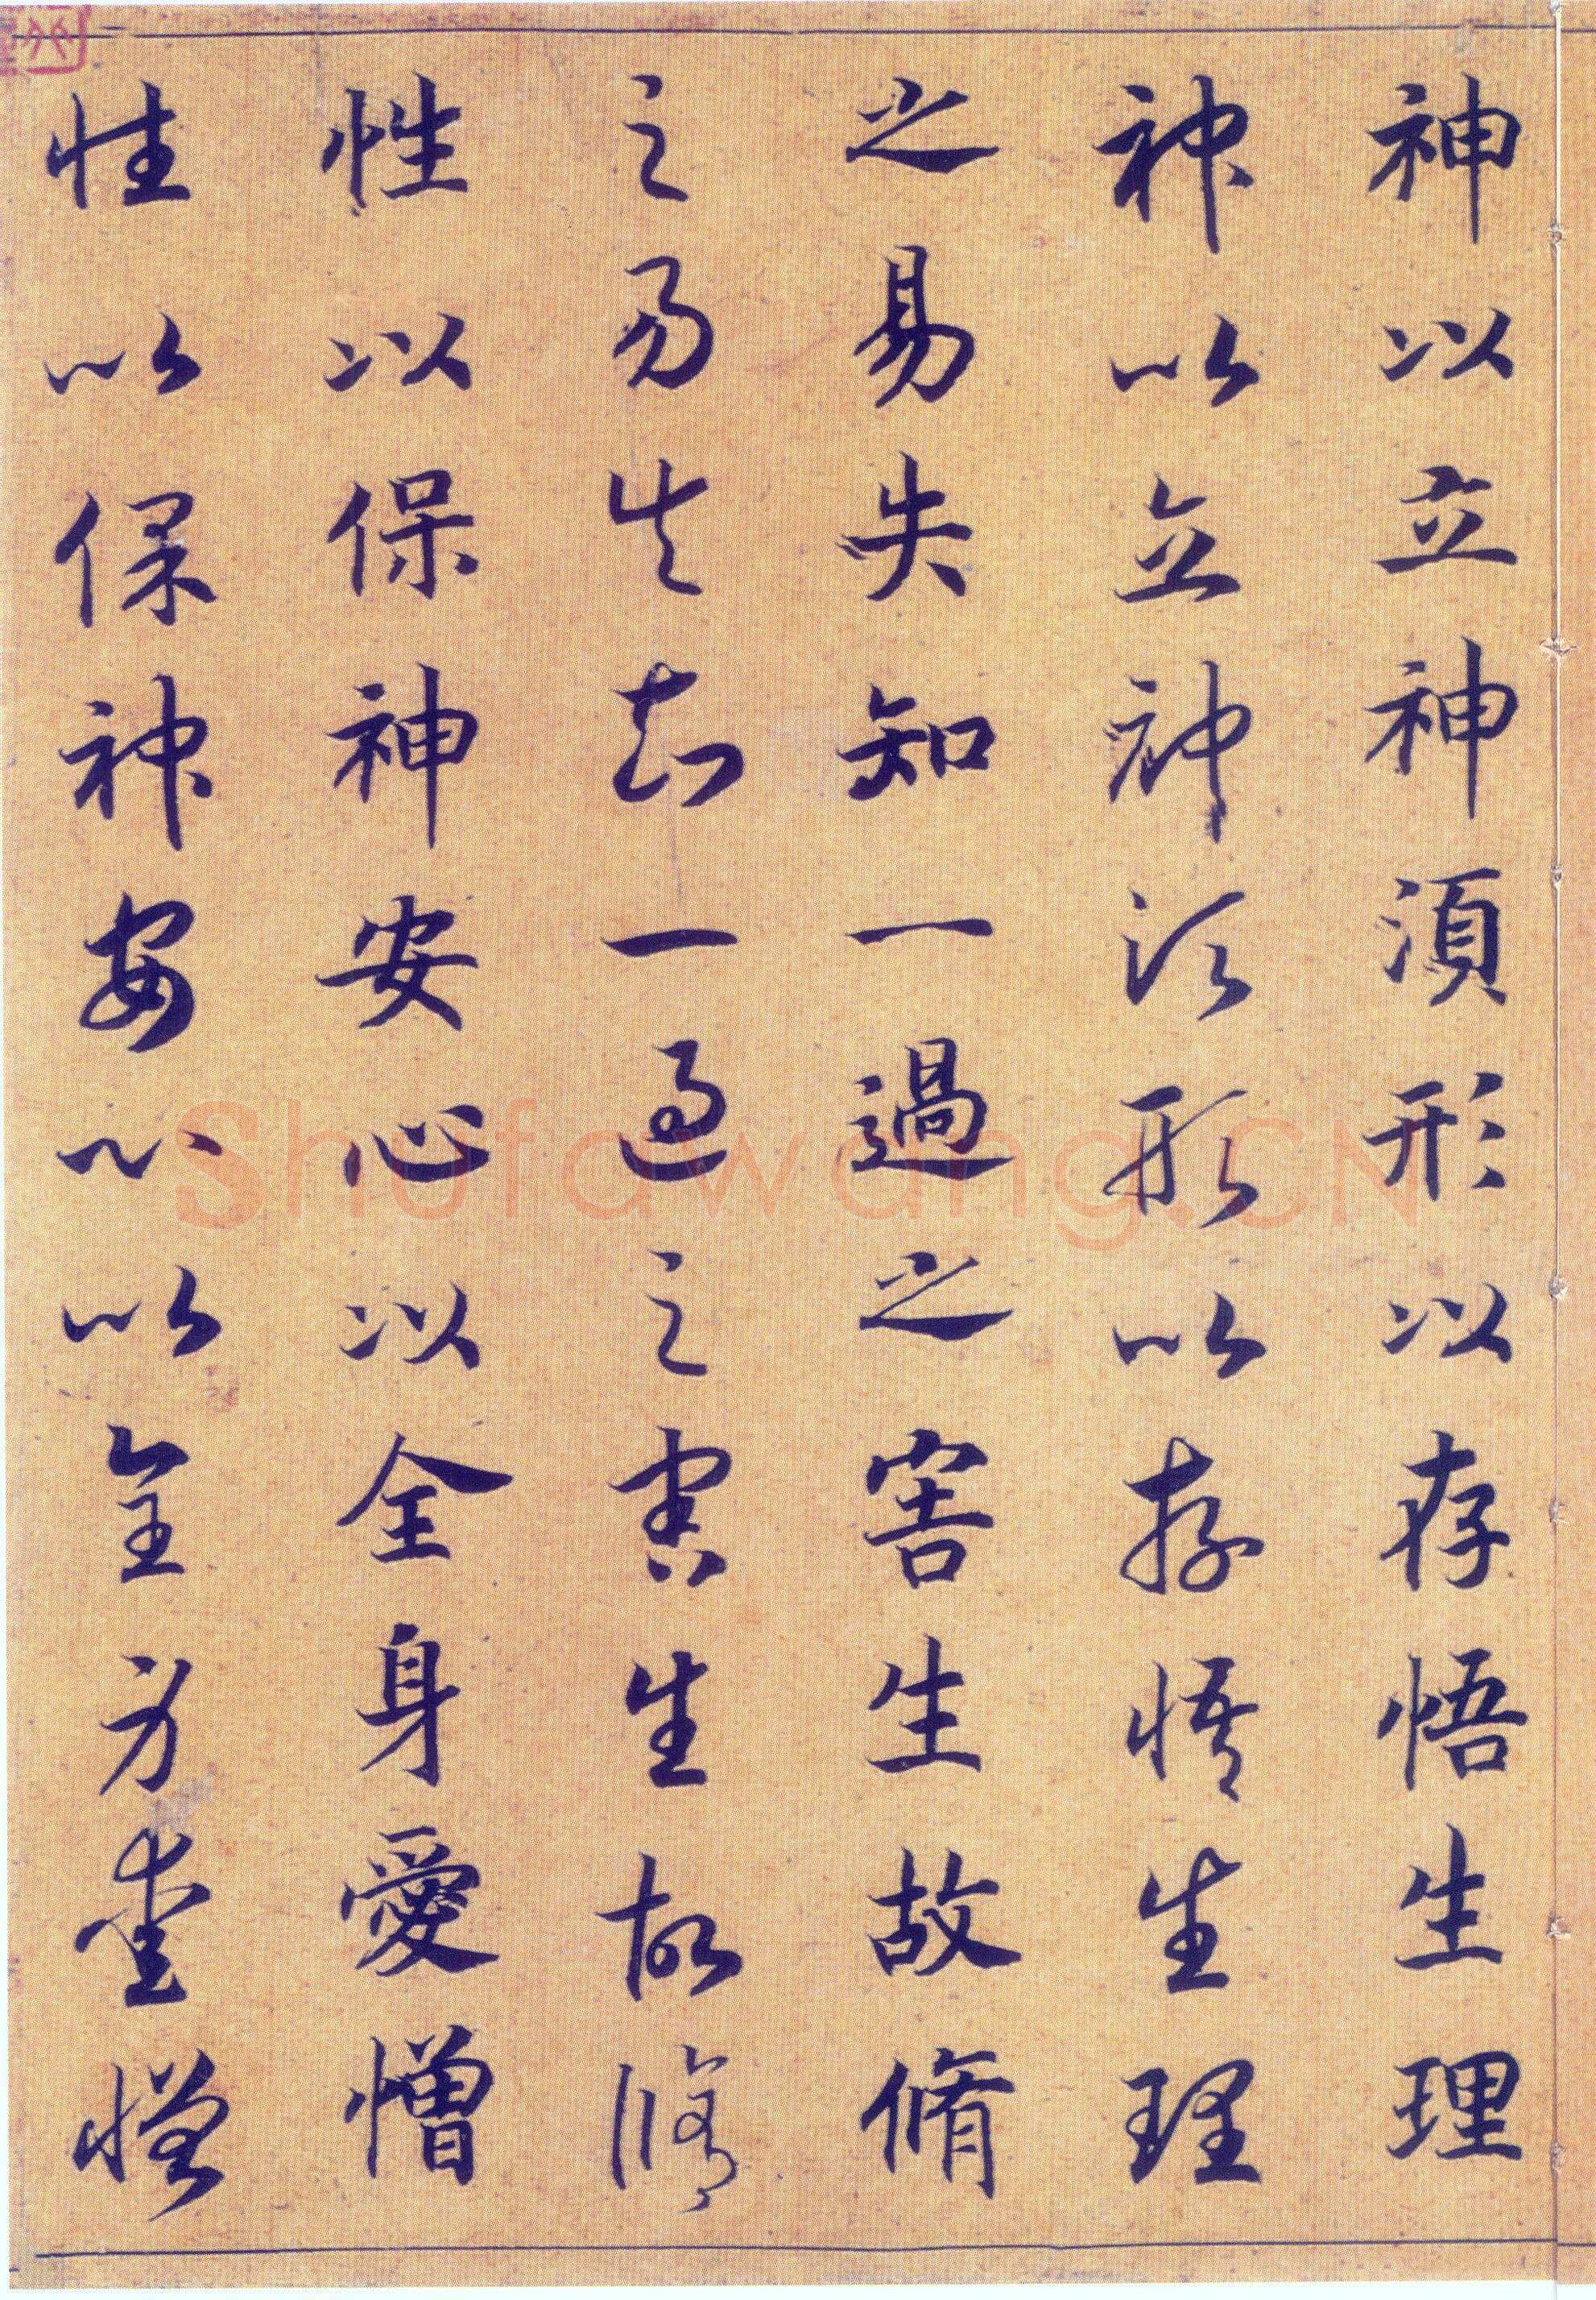 神以立神須形以存悟生理
神以立神須形以存悟生理
之易失知一過之害生故脩
之易失知一過之害生故脩
性以保神安心以全身愛憎
性以保神安心以全身愛憎
Shufawang.CN